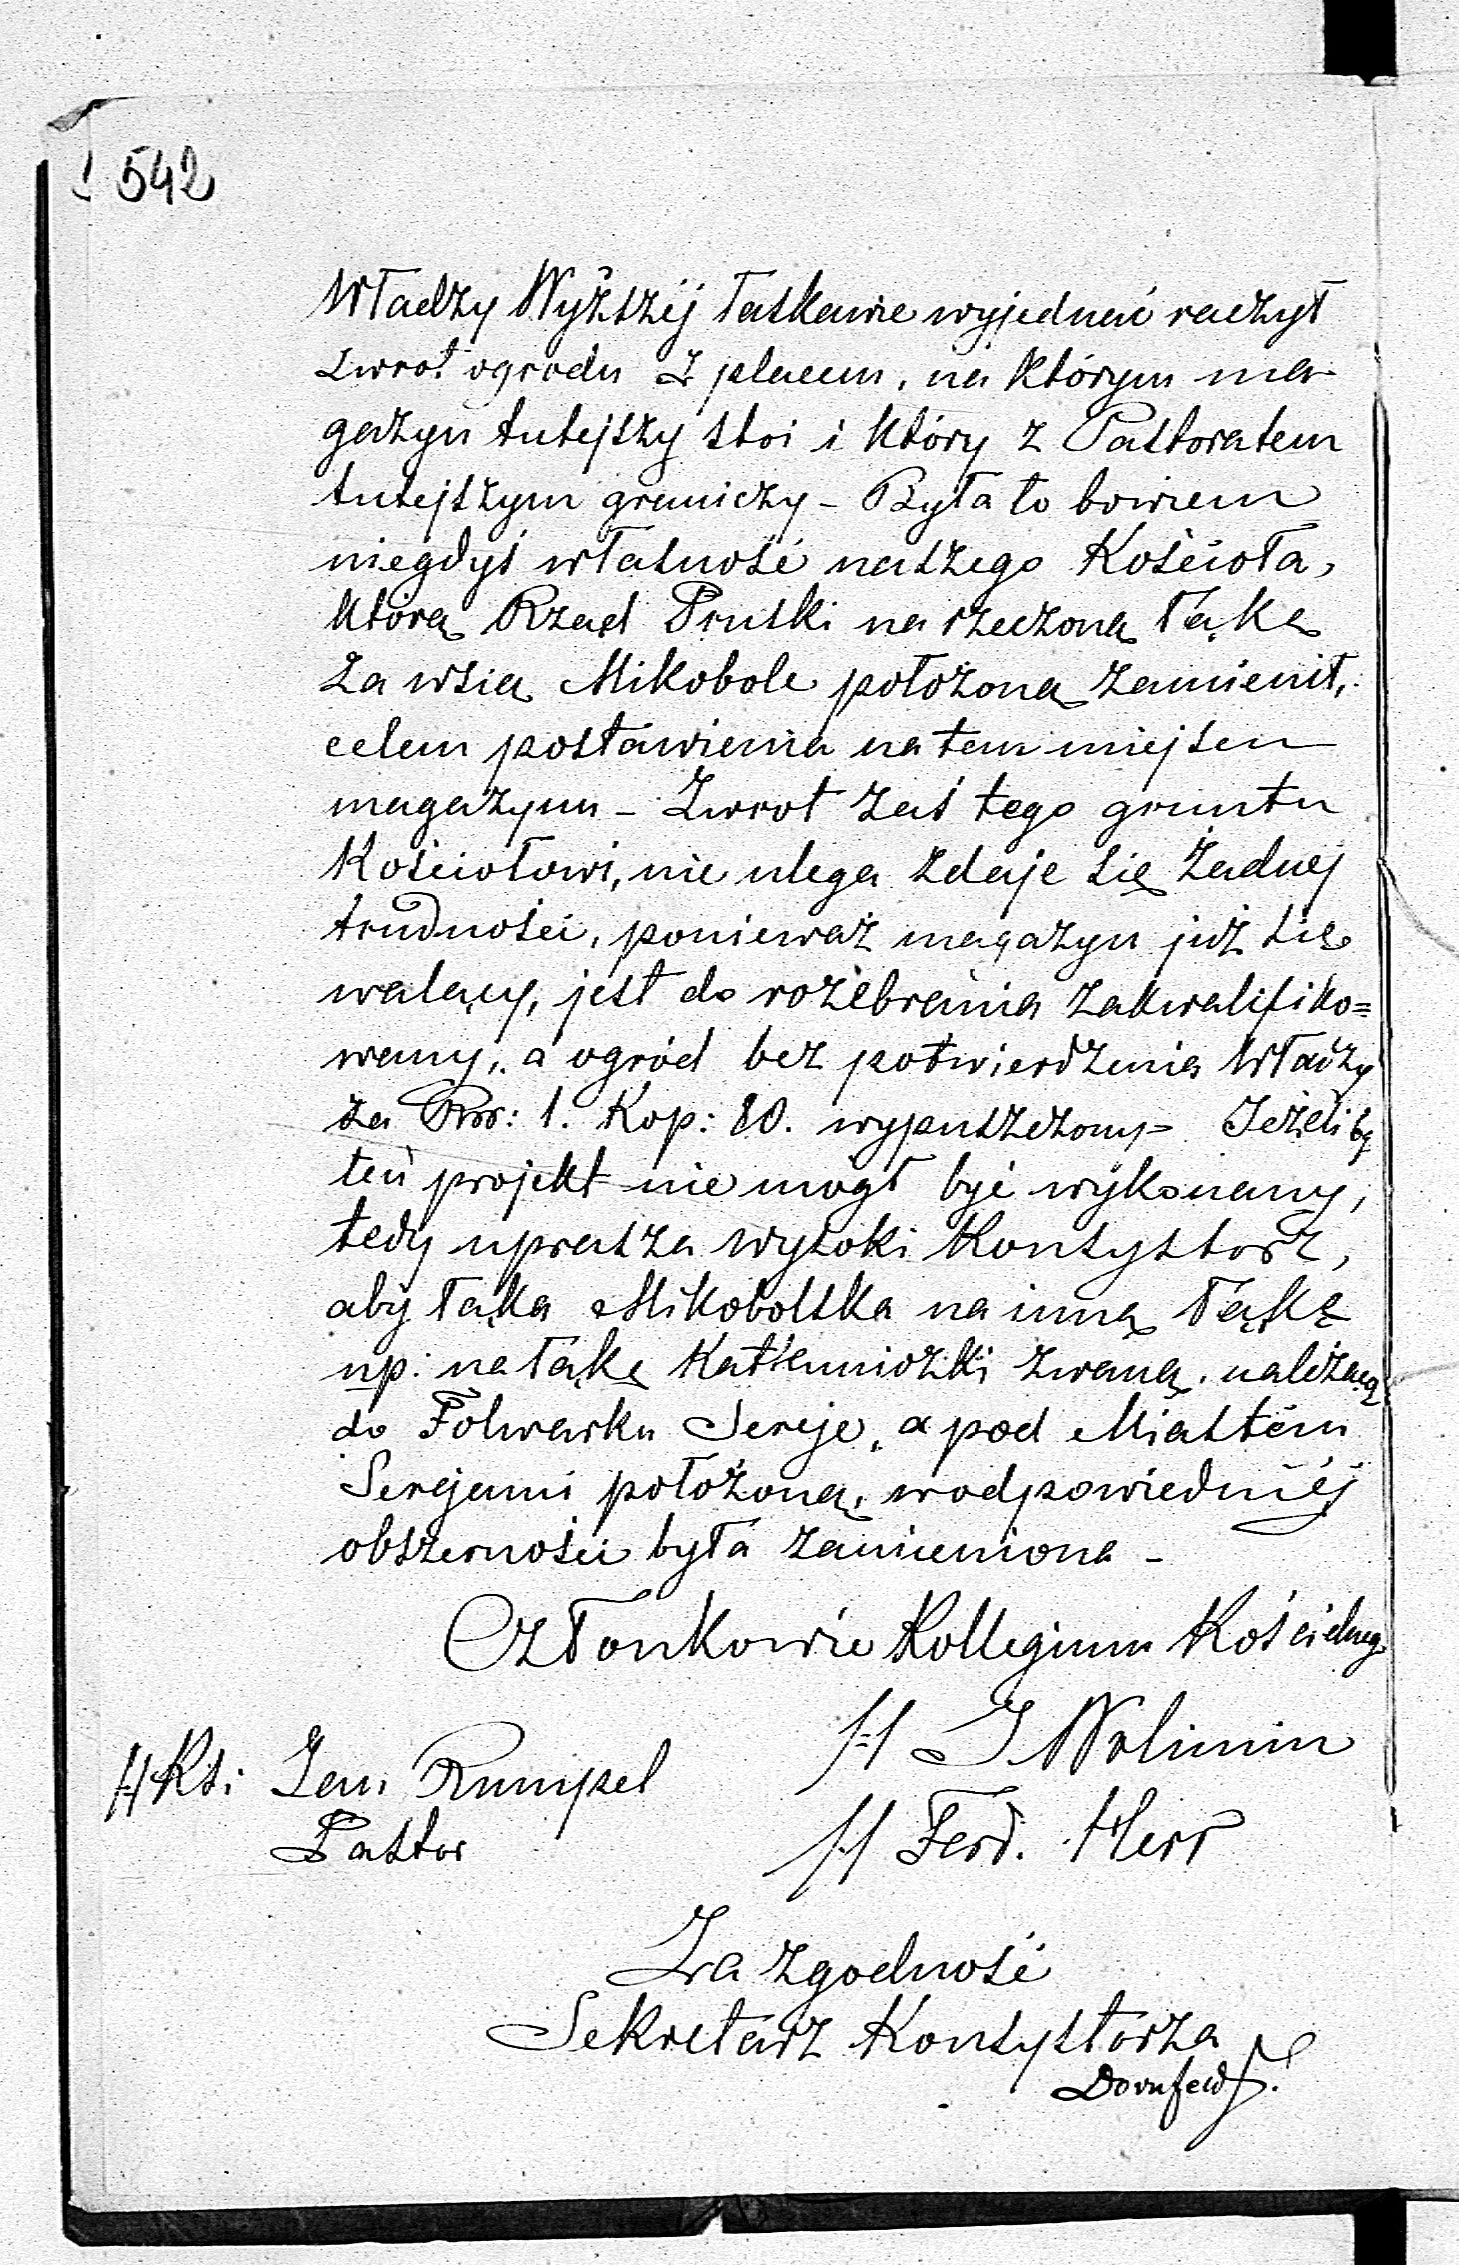 542
Władzy Wyższéj łaskawie wyjednać raczył
zwrot ogrodu z placem, na którym ma-
gazyn tutejszy stoi i który z Pastoratem
tutejszym graniczy – Była to bowiem
niegdyś własność naszego Kościoła,
którą Rząd Pruski na rzeczoną łąkę
za wsią Mikobole położoną zamienił,
celem postawienia na tem miejscu
magazynu – Zwrot zaś tego gruntu
Kościołowi, nie ulega zdaje się żadnej
trudności, ponieważ magazyn już się
walący, jest do rozebrania zakwalifiko=
wany, a ogród bez potwierdzenia Władzy
za Rsr: 1. Kop: 80. wypuszczony – Jeżeliby
ten projekt nie mógł być wykonany,
tedy uprasza wysoki Konsystorz,
aby łąka Mikobolska na inną łąkę
np: na łąkę zwaną, należącą
do Folwarku Sereje, a pod Miastem
Serejami położoną, w odpowiedniéj
obszerności była zamieniona –
Członkowie Kollegium Kościelnego
/-/ J Wolimin
/-/ Ks: Jan Rumpel
Pastor
/-/ Ferd. Herr
Za zgodność
Sekretarz Konsystorza
Dornfeld